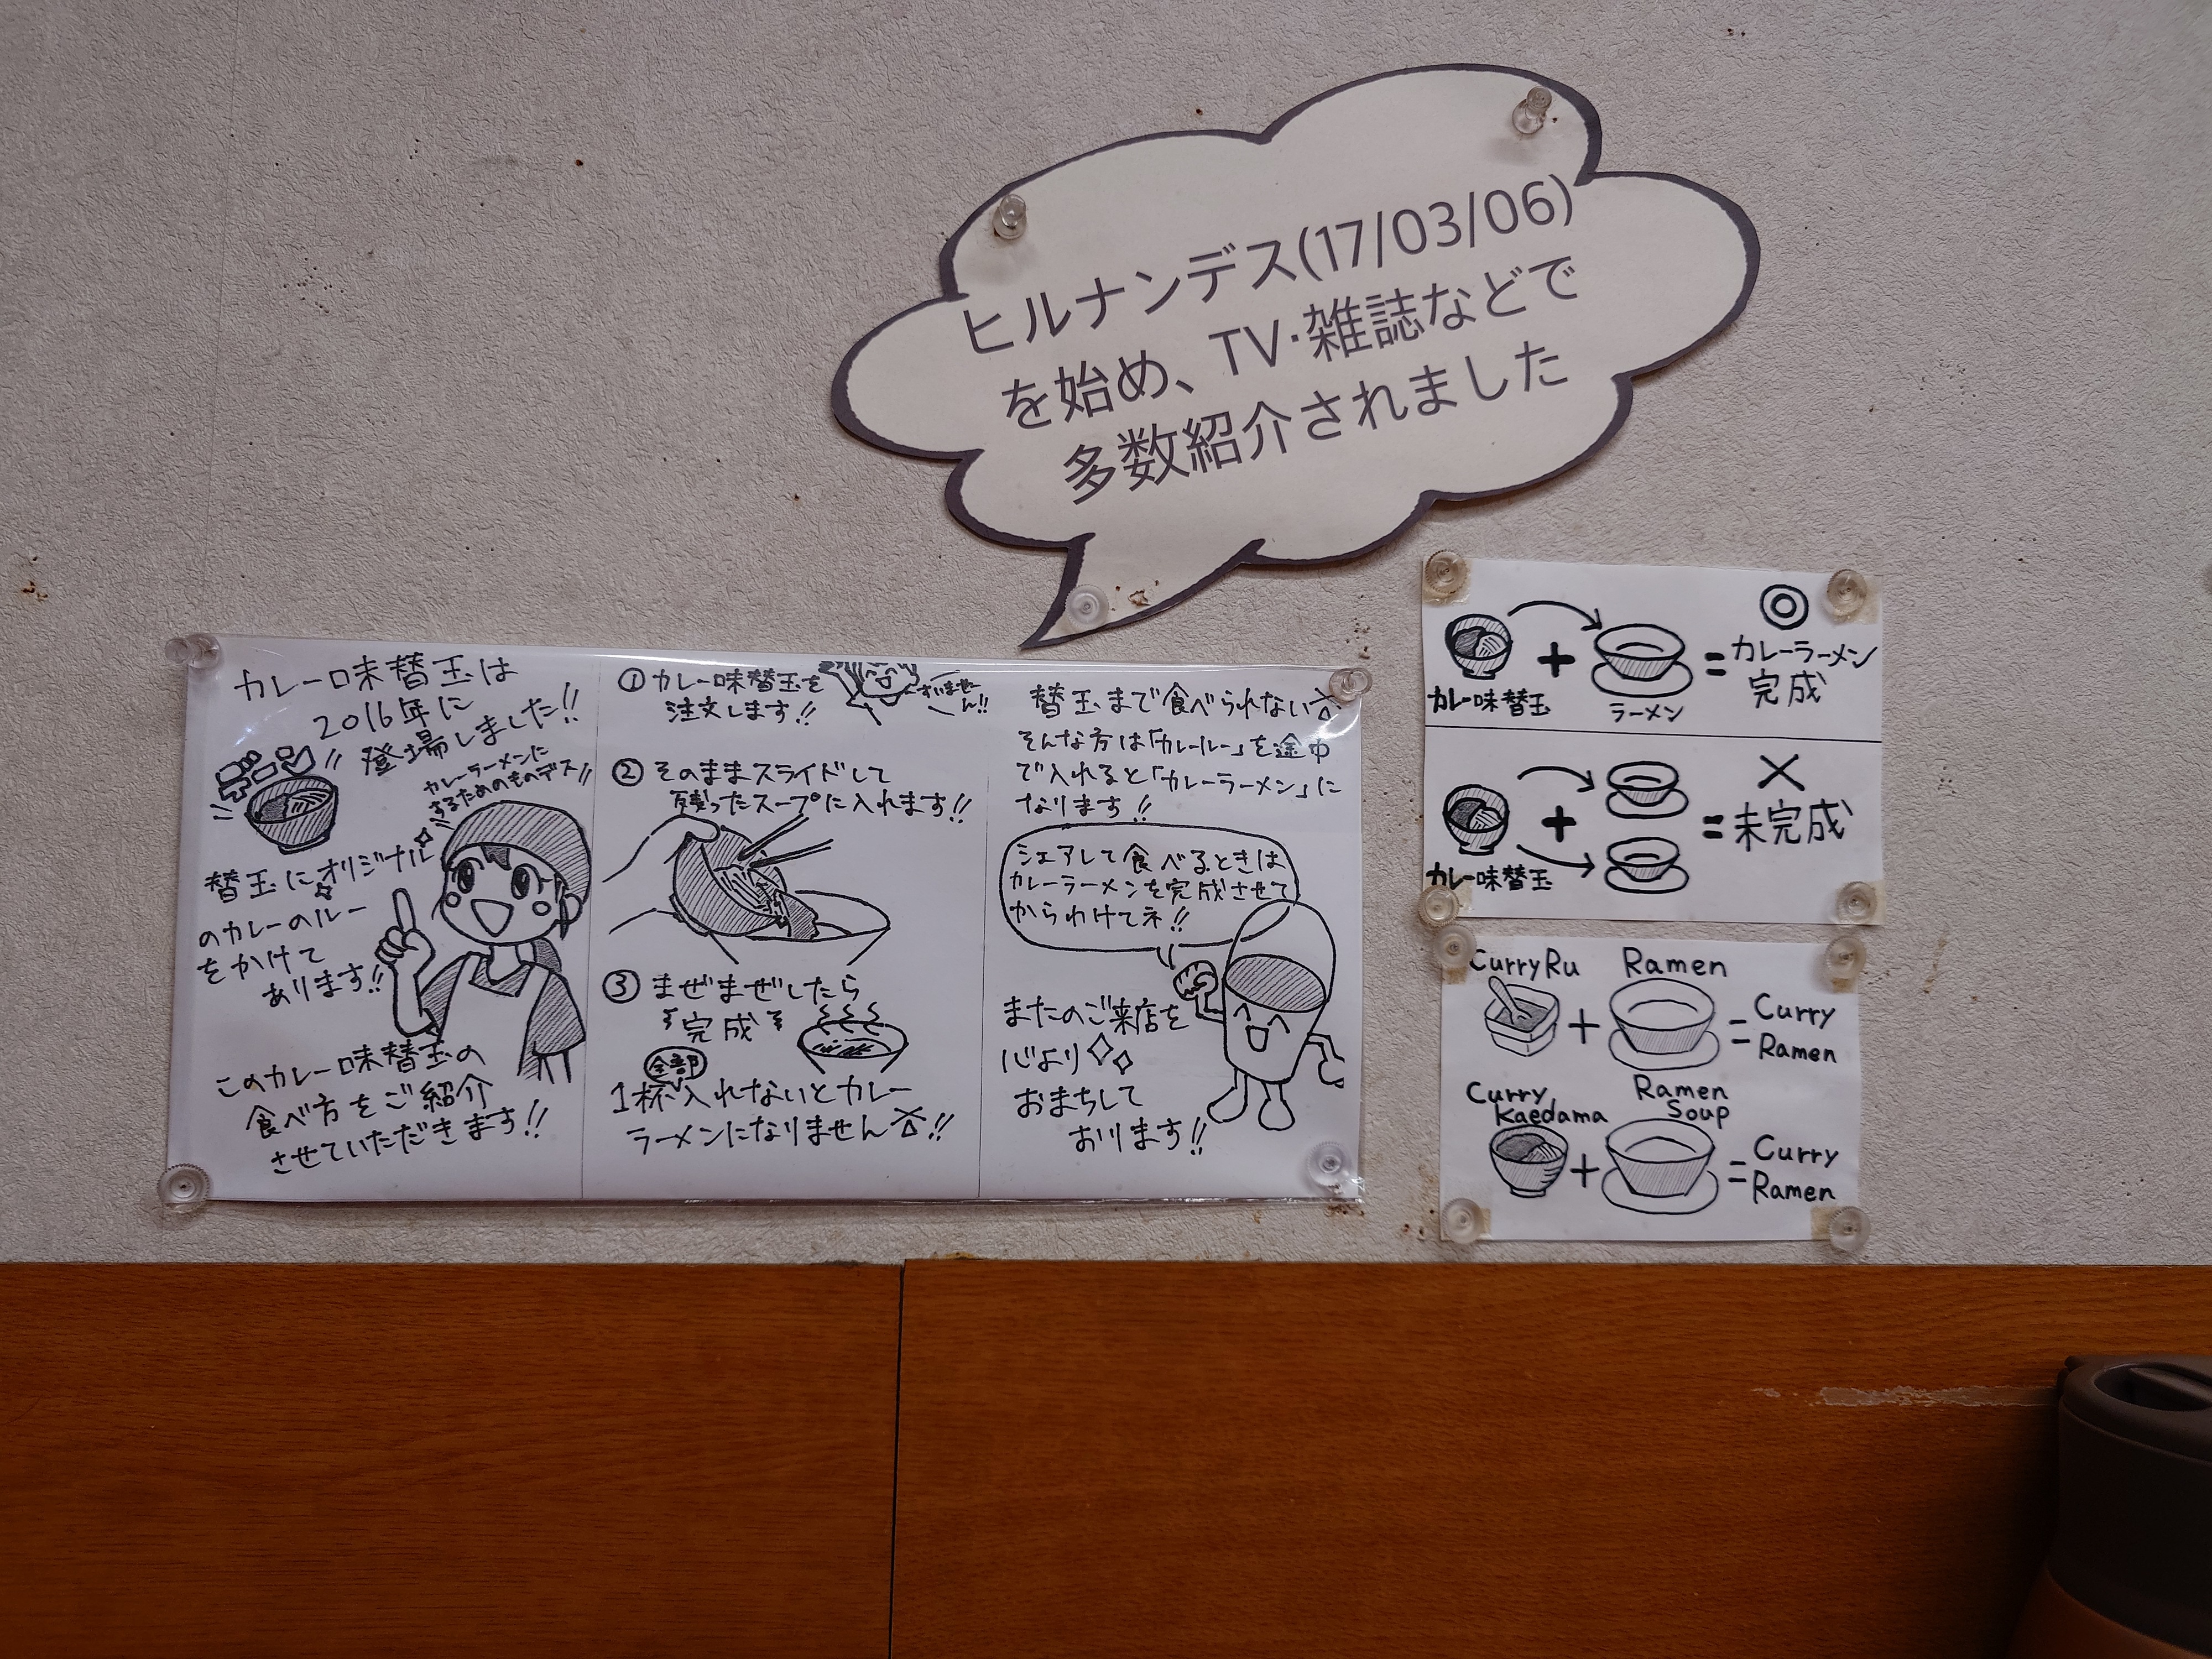 ヒルナンデス(17/03/06)
を始め、TV・雑誌などで
多数紹介されました
カレー味替玉は
2016年に
登場しました!!
カレーラーメンに
するためのものデス!!
替玉にオリジナル
のカレーのルー
をかけて
あります!!
このカレー味替玉の
食べ方をご紹介
させていただきます!!
①カレー味替玉を
注文します!!
すいませーん!!
②そのままスライドして
残ったスープに入れます!!
③まぜまぜしたら
完成
全部
1杯入れないとカレー
ラーメンになりません!!
替玉まで食べられない
そんな方は「カレールー」を途中
で入れると「カレーラーメン」に
なります!!
シェアして食べるときは
カレーラーメンを完成させて
からわけてネ!!
またのご来店を
心より
おまちして
おります!!
カレー味替玉
+
ラーメン
=
◎
カレーラーメン
完成
カレー味替玉
+
=
×
未完成
Curry Ru
Ramen
+
=
Curry
Ramen
Curry
Kaedama
Ramen
Soup
+
=
Curry
Ramen